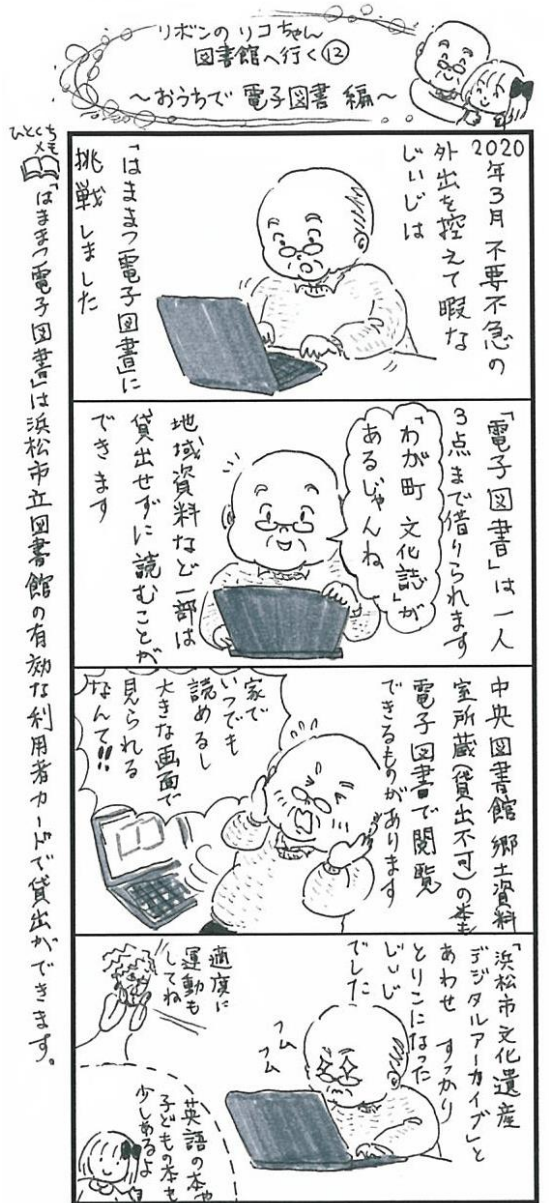 リボンのリコちゃん
図書館へ行く⑫
～おうちで電子図書編～
2020
年3月不要不急の
外出を控えて暇な
じいじは
「はままつ電子図書」に
挑戦しました
「電子図書」は一人
3点まで借りられます
「わが町文化誌」が
あるじゃんね
地域資料など一部は
貸出せずに読むことが
できます
中央図書館郷土資料
室所蔵(貸出不可)の本も
電子図書で閲覧
できるものがあります
家で
いつでも
読めるし
大きな画面で
見られる
なんて!!
「浜松市文化遺産
デジタルアーカイブ」と
あわせすっかり
とりこになった
じいじ
でした
フム
フム
適度に
運動も
してね
英語の本や
子どもの本も
少しあるよ
ひとくち
メモ
「はままつ電子図書」は浜松市立図書館の有効な利用者カードで貸出ができます。